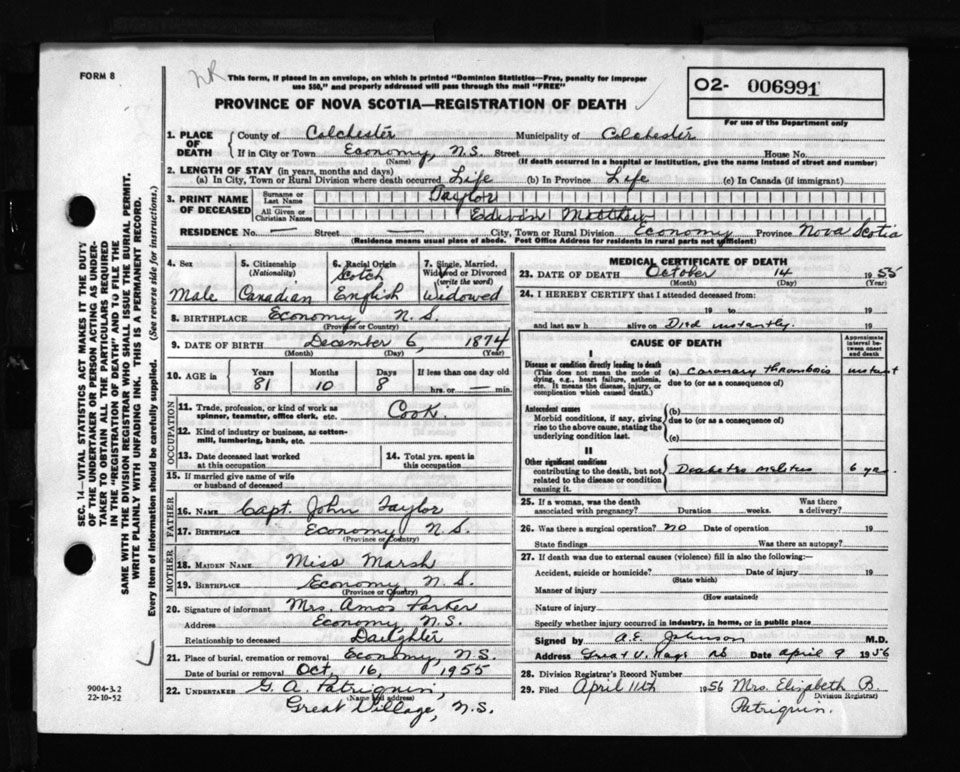 FORM 8
NR
This form, if placed in an envelope, on which is printed "Dominion Statistics—Free, penalty for improper
use $50," and properly addressed will pass through the mail "FREE"
PROVINCE OF NOVA SCOTIA—REGISTRATION OF DEATH
02- 006991
For use of the Department only
1. PLACE OF DEATH
County of Colchester Municipality of Colchester
If in City or Town Economy, N.S. Street House No.
(Name) (If death occurred in a hospital or institution, give the name instead of street and number)
2. LENGTH OF STAY (in years, months and days)
(a) In City, Town or Rural Division where death occurred Life (b) In Province Life (c) In Canada (if immigrant)
3. PRINT NAME OF DECEASED
Surname or Last Name Taylor
All Given or Christian Names Edwin Matthew
RESIDENCE No. — Street — City, Town or Rural Division Economy Province Nova Scotia
(Residence means usual place of abode. Post Office Address for residents in rural parts not sufficient)
4. Sex
Male
5. Citizenship
(Nationality)
Canadian
6. Racial Origin
Scotch
English
7. Single, Married,
Widowed or Divorced
(write the word)
Widowed
8. BIRTHPLACE Economy, N.S.
(Province or Country)
9. DATE OF BIRTH December 6, 1874
(Month) (Day) (Year)
10. AGE in
Years Months Days If less than one day old
81 10 8 hrs. or — min.
OCCUPATION
11. Trade, profession, or kind of work as
spinner, teamster, office clerk, etc. Cook
12. Kind of industry or business, as cotton-
mill, lumbering, bank, etc.
13. Date deceased last worked
at this occupation
14. Total yrs. spent in
this occupation
15. If married give name of wife
or husband of deceased
FATHER
16. NAME Capt. John Taylor
17. BIRTHPLACE Economy N.S.
(Province or Country)
MOTHER
18. MAIDEN NAME Miss Marsh
19. BIRTHPLACE Economy N.S.
(Province or Country)
20. Signature of informant Mrs. Amos Parker
Address Economy N.S.
Relationship to deceased Daughter
21. Place of burial, cremation or removal Economy, N.S.
Date of burial or removal Oct. 16, 1955
22. UNDERTAKER G. A. Patriquin,
(Name and address)
Great Village, N.S.
MEDICAL CERTIFICATE OF DEATH
23. DATE OF DEATH October 14 1955
(Month) (Day) (Year)
24. I HEREBY CERTIFY that I attended deceased from:
19 to 19
and last saw h alive on Died instantly. 19
CAUSE OF DEATH
Approximate
interval be-
tween onset
and death
I
Disease or condition directly leading to death
(This does not mean the mode of
dying, e.g., heart failure, asthenia,
etc. It means the disease, injury, or
complication which caused death.)
(a) Coronary thrombosis instant
due to (or as a consequence of)
Antecedent causes
Morbid conditions, if any, giving
rise to the above cause, stating the
underlying condition last.
(b)
due to (or as a consequence of)
(c)
II
Other significant conditions
contributing to the death, but not
related to the disease or condition
causing it.
Diabetes melitus 6 yrs.
25. If a woman, was the death
associated with pregnancy? Duration weeks.
Was there
a delivery?
26. Was there a surgical operation? no Date of operation 19
State findings Was there an autopsy?
27. If death was due to external causes (violence) fill in also the following:—
Accident, suicide or homicide? Date of injury 19
(State which)
Manner of injury
(How sustained)
Nature of injury
Specify whether injury occurred in industry, in home, or in public place
Signed by A.E. Johnson M.D.
Address Great Village NS Date April 9 1956
28. Division Registrar's Record Number
29. Filed April 11th 1956 Mrs. Elizabeth B.
(Division Registrar)
Patriquin.
SEC. 14—VITAL STATISTICS ACT MAKES IT THE DUTY
OF THE UNDERTAKER OR PERSON ACTING AS UNDER-
TAKER TO OBTAIN ALL THE PARTICULARS REQUIRED
IN THE "REGISTRATION OF DEATH" AND TO FILE THE
SAME WITH THE DIVISION REGISTRAR WHO SHALL ISSUE THE BURIAL PERMIT.
WRITE PLAINLY WITH UNFADING INK. THIS IS A PERMANENT RECORD.
Every item of information should be carefully supplied. (See reverse side for instructions.)
9004-3.2
22-10-52